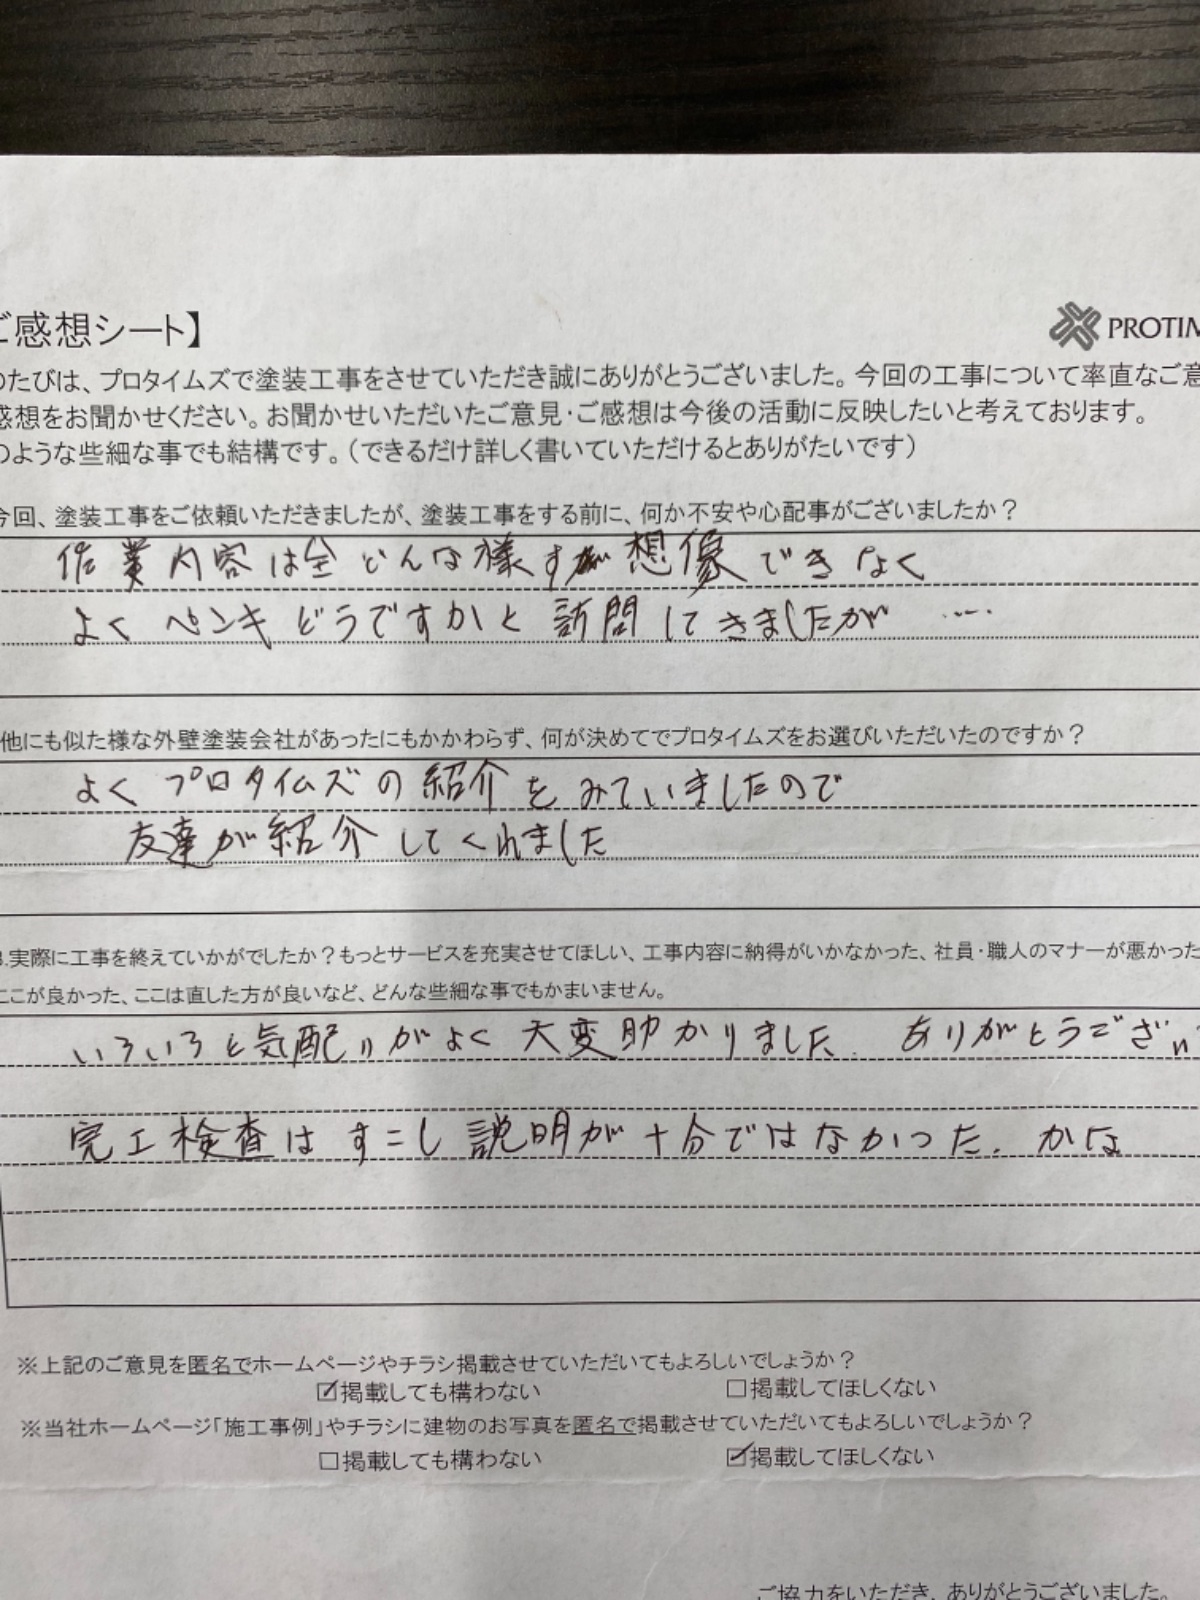 ご感想シート】
PROTIM
のたびは、プロタイムズで塗装工事をさせていただき誠にありがとうございました。今回の工事について率直なご意
感想をお聞かせください。お聞かせいただいたご意見・ご感想は今後の活動に反映したいと考えております。
のような些細な事でも結構です。(できるだけ詳しく書いていただけるとありがたいです)
今回、塗装工事をご依頼いただきましたが、塗装工事をする前に、何か不安や心配事がございましたか?
作業内容は全どんな様すが想像できなく
よくペンキどうですかと訪問してきましたが ……
他にも似た様な外壁塗装会社があったにもかかわらず、何が決めてでプロタイムズをお選びいただいたのですか?
よくプロタイムズの紹介をみていましたので
友達が紹介してくれました
3.実際に工事を終えていかがでしたか?もっとサービスを充実させてほしい、工事内容に納得がいかなかった、社員・職人のマナーが悪かった
ここが良かった、ここは直した方が良いなど、どんな些細な事でもかまいません。
いろいろと気配りがよく大変助かりました. ありがとうござい
完工検査はすこし説明が十分ではなかった. かな
※上記のご意見を匿名でホームページやチラシ掲載させていただいてもよろしいでしょうか?
☑掲載しても構わない □掲載してほしくない
※当社ホームページ「施工事例」やチラシに建物のお写真を匿名で掲載させていただいてもよろしいでしょうか?
□掲載しても構わない ☑掲載してほしくない
ご協力をいただき、ありがとうございました。